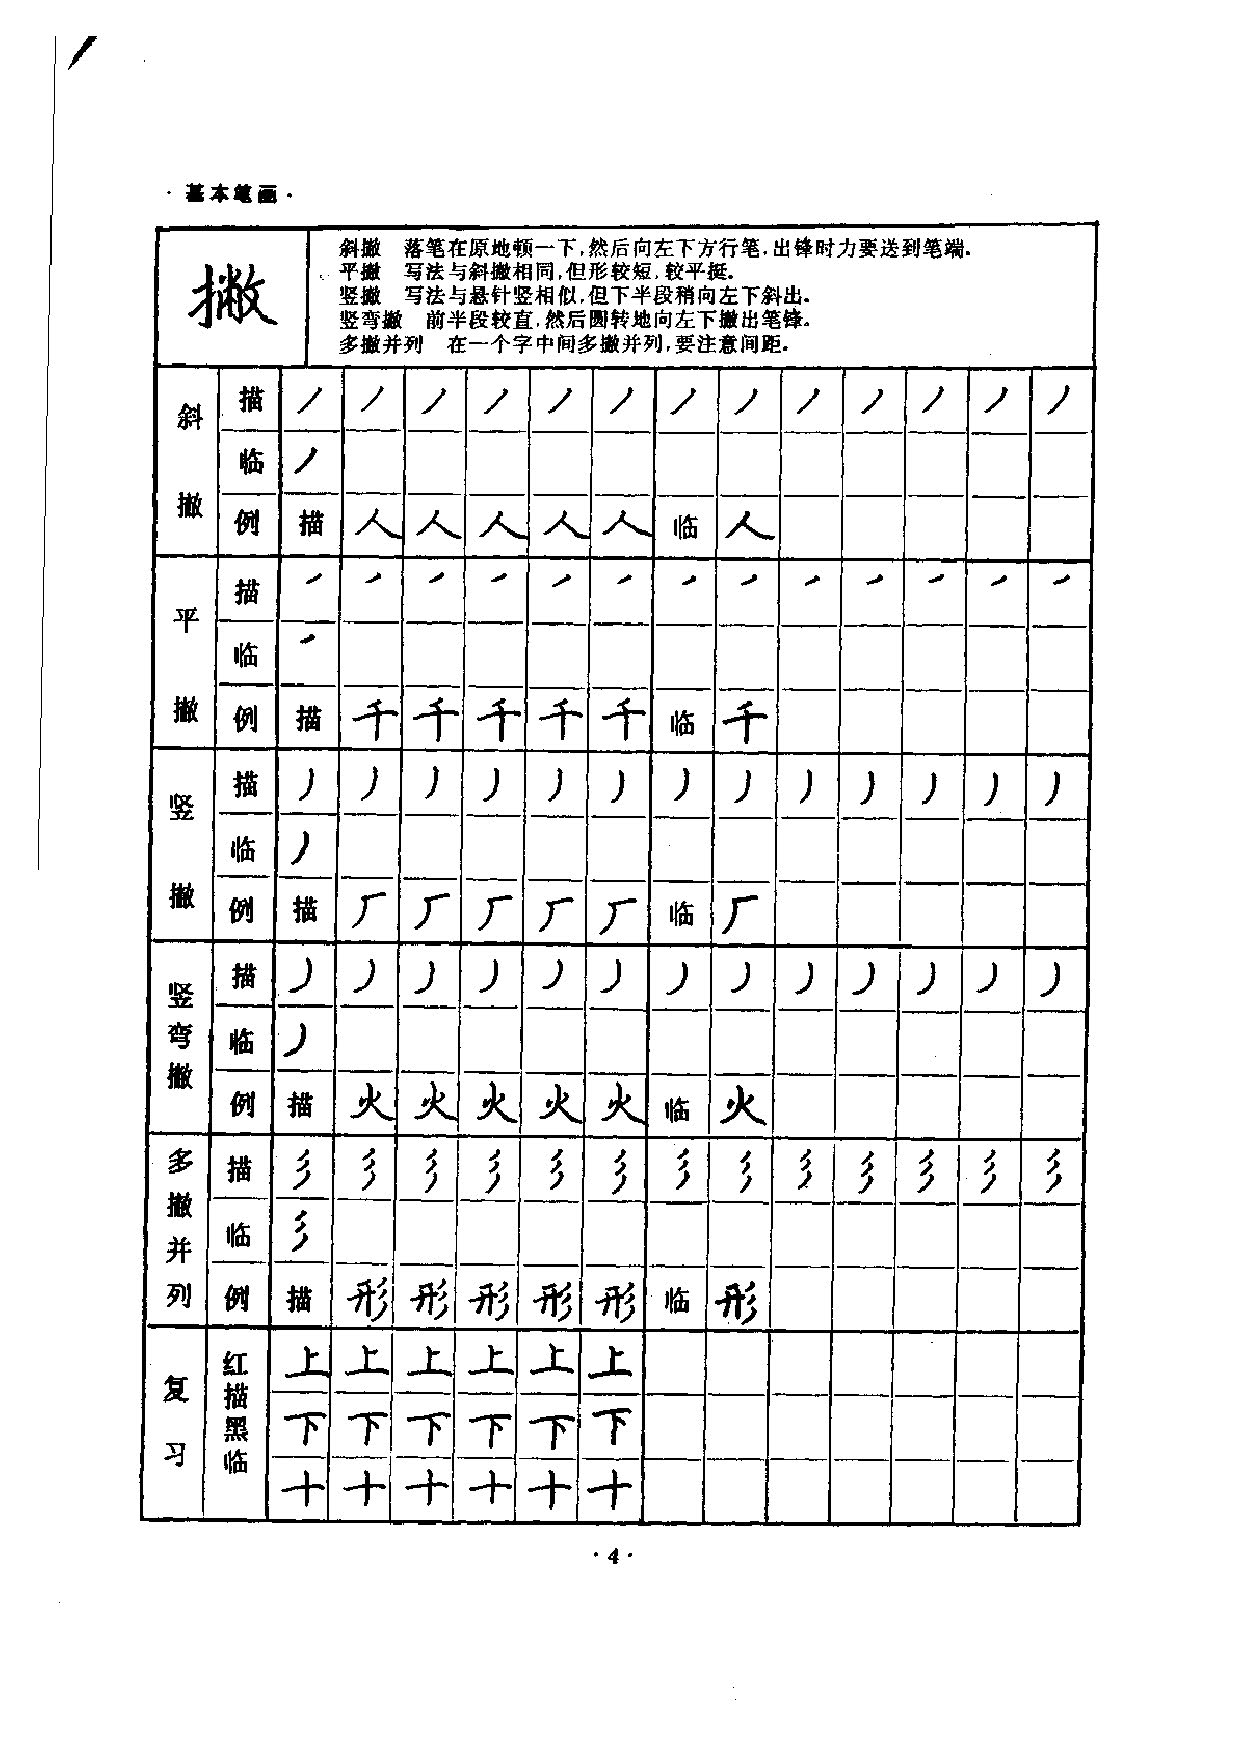 ·基本笔画·
撇
斜撇 落笔在原地顿一下,然后向左下方行笔.出锋时力要送到笔端.
平撇 写法与斜撇相同,但形较短,较平挺.
竖撇 写法与悬针竖相似,但下半段稍向左下斜出.
竖弯撇 前半段较直,然后圆转地向左下撇出笔锋.
多撇并列 在一个字中间多撇并列,要注意间距.
斜撇
描 丿 丿 丿 丿 丿 丿 丿 丿 丿 丿 丿 丿 丿
临 丿
例 描 人 人 人 人 人 临 人
平撇
描 ㇒ ㇒ ㇒ ㇒ ㇒ ㇒ ㇒ ㇒ ㇒ ㇒ ㇒ ㇒ ㇒
临 ㇒
例 描 千 千 千 千 千 临 千
竖撇
描 丿 丿 丿 丿 丿 丿 丿 丿 丿 丿 丿 丿 丿
临 丿
例 描 厂 厂 厂 厂 厂 临 厂
竖弯撇
描 丿 丿 丿 丿 丿 丿 丿 丿 丿 丿 丿 丿 丿
临 丿
例 描 火 火 火 火 火 临 火
多撇并列
描 彡 彡 彡 彡 彡 彡 彡 彡 彡 彡 彡 彡 彡
临 彡
例 描 形 形 形 形 形 临 形
复习
红描黑临
上 上 上 上 上 上
下 下 下 下 下 下
十 十 十 十 十 十
·4·